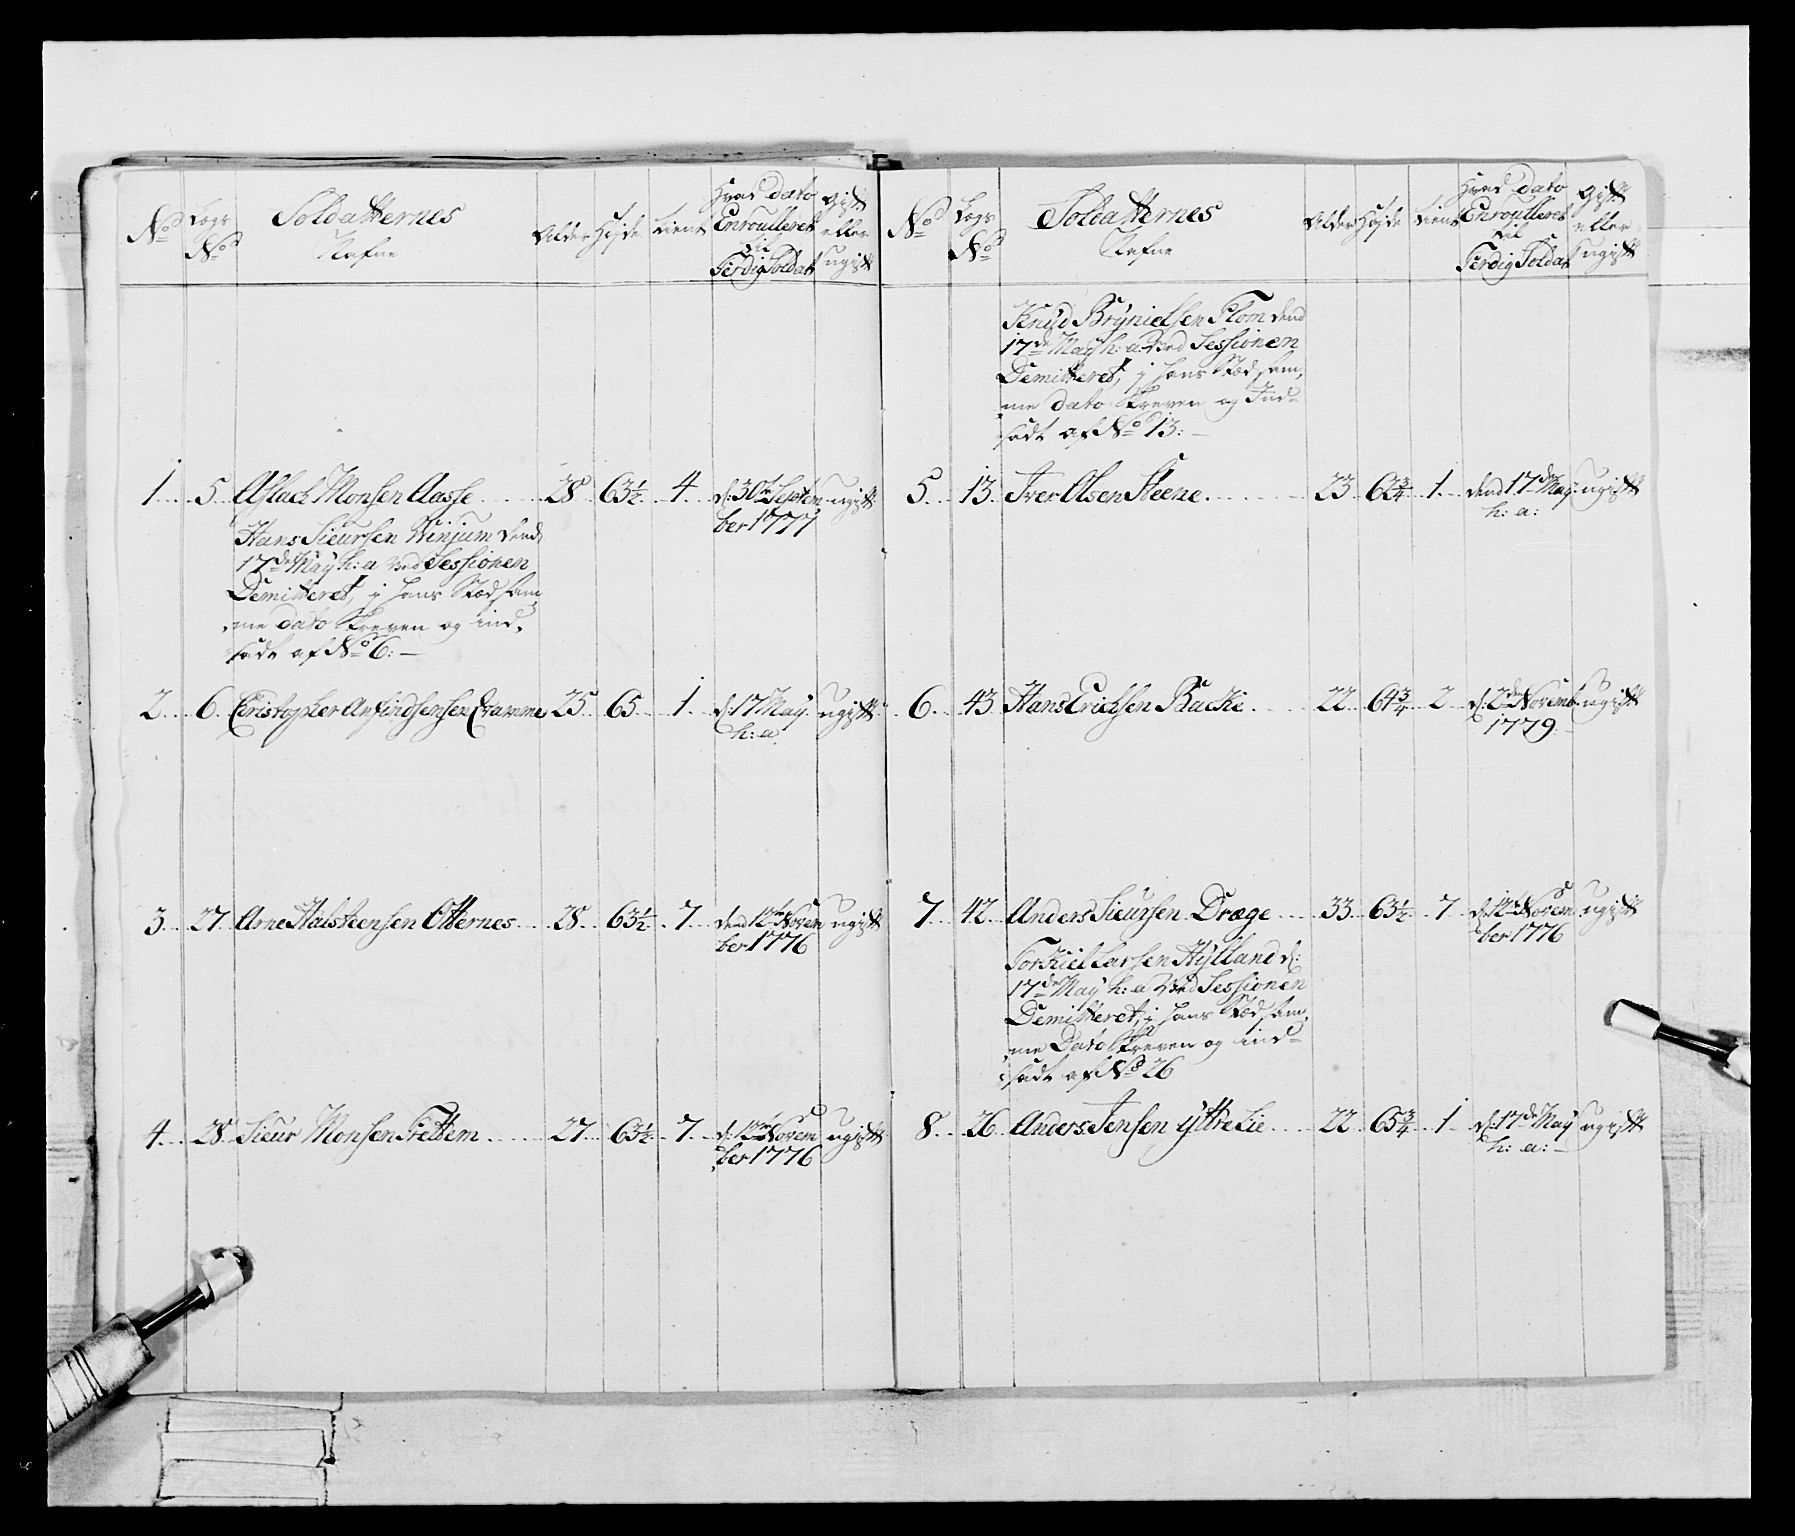 No Lægs No Soldatternes Nafne Alder Høyde tient Hvad dato Enroulleret til Ferdig Soldat Gift eller ugift
1 5 Aslach Monsen Aasse 28 63½ 4 d: 30te Septem
ber 1777 ugift
Hans Sieursen Winjum dend
17de May h: a ved Sessionen
Demitteret, i hans Stæd sam
me dato skreven og ind
sadt af No 6: —
2 6 Christopher Anfindsensen Cramme 25 65 1 d: 17 May ugift
h: a
3 27 Arne Halsteensen Otternes 28 63½ 7 dend 12te Novem ugift
ber 1776
4 28 Sieur Monsen Frettem 27 63½ 7 d: 12te Novem ugift
ber 1776
No Lægs No Soldatternes Nafne Alder Høyde tient Hvad dato Enroulleret til Ferdig Soldat Gift eller ugift
Knud Brÿnielsen Flom dend
17de May h: a ved Sessionen
Demitteret, i hans Stæd sam,
me dato skreven og Ind-
sadt af No 13: —
5 13 Iver Olsen Steene 23 62¾ 1 dend 17de May ugift
h: a:
6 43 Hans Erichsen Backe 22 64¾ 2 d: 2den Novemb ugift
1779
7 42 Anders Sieursen Dræge 33 63½ 7 d: 12te Novem ugift
ber 1776
Torkiel Larsen Hÿlland d:
17de May h: a ved Sessionen
Demitteret, i hans Stæd sam,
me Dato skreven og ind-
sadt af No 26
8 26 Anders Jensen ÿttre Lie 22 65¾ 1 d: 17de May ugift
h: a: —